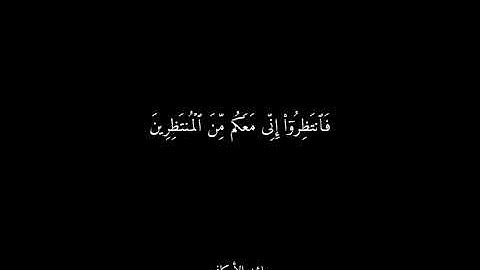 فَٱنتَظِرُوٓا۟ إِنِّى مَعَكُم مِّنَ ٱلْمُنتَظِرِينَ